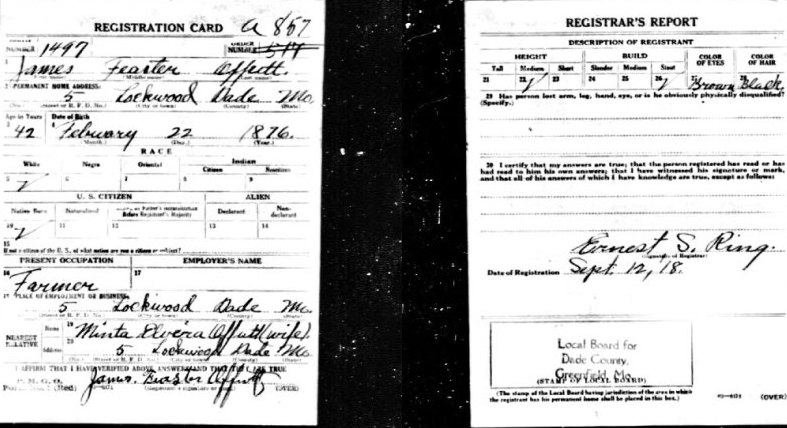 REGISTRATION CARD A 857
SERIAL NUMBER 1497 ORDER NUMBER
1 James Feaster Offutt.
(First name) (Middle name)
2 PERMANENT HOME ADDRESS:
5 Lockwood Dade Mo.
(No.) (Street or R. F. D. No.) (City or town) (County) (State)
Age in Years Date of Birth
3 42 4 February 22 1876.
(Month.) (Day.) (Year.)
RACE
White Negro Oriental Indian
Citizen Noncitizen
5 ✓ 6 7 8 9
U. S. CITIZEN ALIEN
Native Born Naturalized Citizen by Father's Naturalization Before Registrant's Majority Declarant Non-declarant
10 ✓ 11 12 13 14
15
If not a citizen of the U. S., of what nation are you a citizen or subject?
PRESENT OCCUPATION EMPLOYER'S NAME
16 Farmer 17
18 PLACE OF EMPLOYMENT OR BUSINESS:
5 Lockwood Dade Mo
(No.) (Street or R. F. D. No.) (City or town) (County) (State)
NEAREST RELATIVE Name 19 Minta Elvera Offutt (wife).
Address 20 5 Lockwood Dade Mo
(No.) (Street or R. F. D. No.) (City or town) (County) (State)
I AFFIRM THAT I HAVE VERIFIED ABOVE ANSWERS AND THAT THEY ARE TRUE
P. M. G. O.
Form No. 1 (Red) James Feaster Offutt
(Registrant's signature or mark) (OVER)
REGISTRAR'S REPORT
DESCRIPTION OF REGISTRANT
HEIGHT BUILD COLOR OF EYES COLOR OF HAIR
Tall Medium Short Slender Medium Stout
21 22 ✓ 23 24 25 26 ✓ 27 Brown 28 Black.
29 Has person lost arm, leg, hand, eye, or is he obviously physically disqualified?
(Specify.)
30 I certify that my answers are true; that the person registered has read or has
had read to him his own answers; that I have witnessed his signature or mark,
and that all of his answers of which I have knowledge are true, except as follows:
Ernest S. Ring.
(Signature of Registrar)
Date of Registration Sept. 12, 18.
Local Board for
Dade County,
Greenfield, Mo.
(STAMP OF LOCAL BOARD)
(The stamp of the Local Board having jurisdiction of the area in which
the registrant has his permanent home shall be placed in this box.)
(OVER)